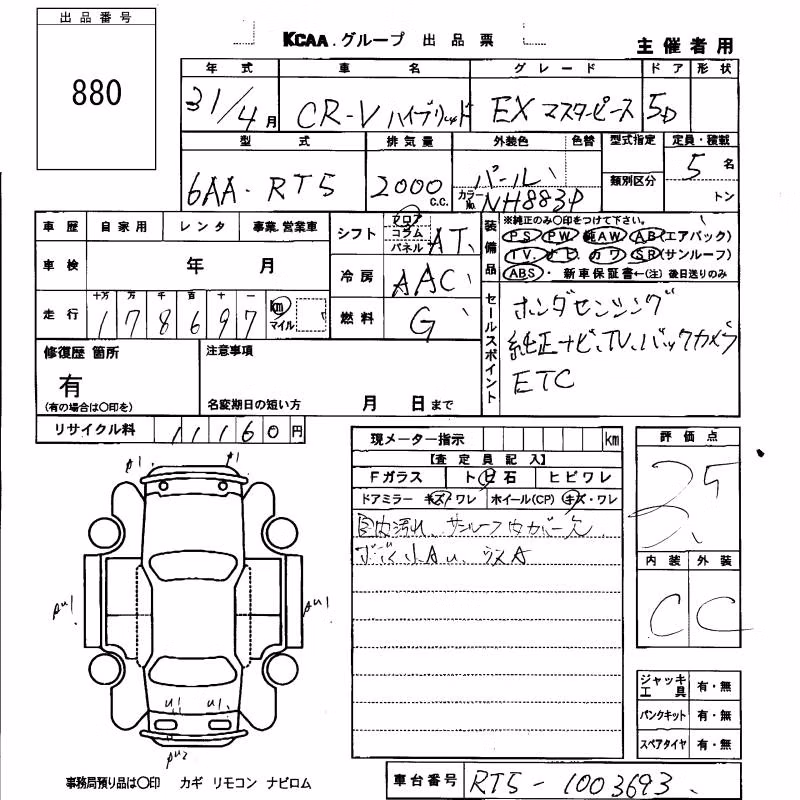 出品番号
880
KCAA.グループ 出品票
主催者用
年式 車名 グレード ドア 形状
31/4月 CR-V ハイブリッド EX マスターピース 5D
型式 排気量 外装色 色替 型式指定 定員・積載
類別区分
6AA-RT5 2000 C.C. パール 5名
カラーNo. NH883P トン
車歴 自家用 レンタ 事業.営業車
シフト フロア コラム パネル AT
装備品 ※純正のみ〇印をつけて下さい。
PS PW. 純AW. AB(エアバック)
TV. ナビ. カワ. SR(サンルーフ)
ABS・新車保証書←(注)後日送りのみ
車検 年 月
冷房 AAC
走行 十万 万 千 百 十 一
178697 km マイル
燃料 G
セールスポイント ホンダセンシング
純正ナビ、TV、バックカメラ
ETC
修復歴 箇所
有
(有の場合は〇印を)
注意事項
名変期日の短い方 月 日まで
リサイクル料 11160円
現メーター指示 km
【査定員記入】
Fガラス ト 石 ヒビワレ
ドアミラー キズ ワレ ホイール(CP) キズ・ワレ
内汚れ サンルーフ内カバー欠
小AU
評価点
内装 外装
C C
A1 A1
AU1 AU1
U1 U1
AU2
ジャッキ工具 有・無
パンクキット 有・無
スペアタイヤ 有・無
事務局預り品は〇印 カギ リモコン ナビロム
車台番号 RT5-1003693